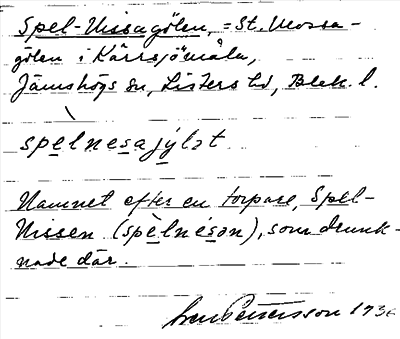 Spel-Nissagölen, = St. Mossa-
gölen i Kärrsjömåla,
Jämshögs sn, Listers hd, Blek. l.
spelnesajýlət
Namnet efter en torpare, Spel-
Nissen (spèlnéson), som drunk-
nade där.
Pettersson 193